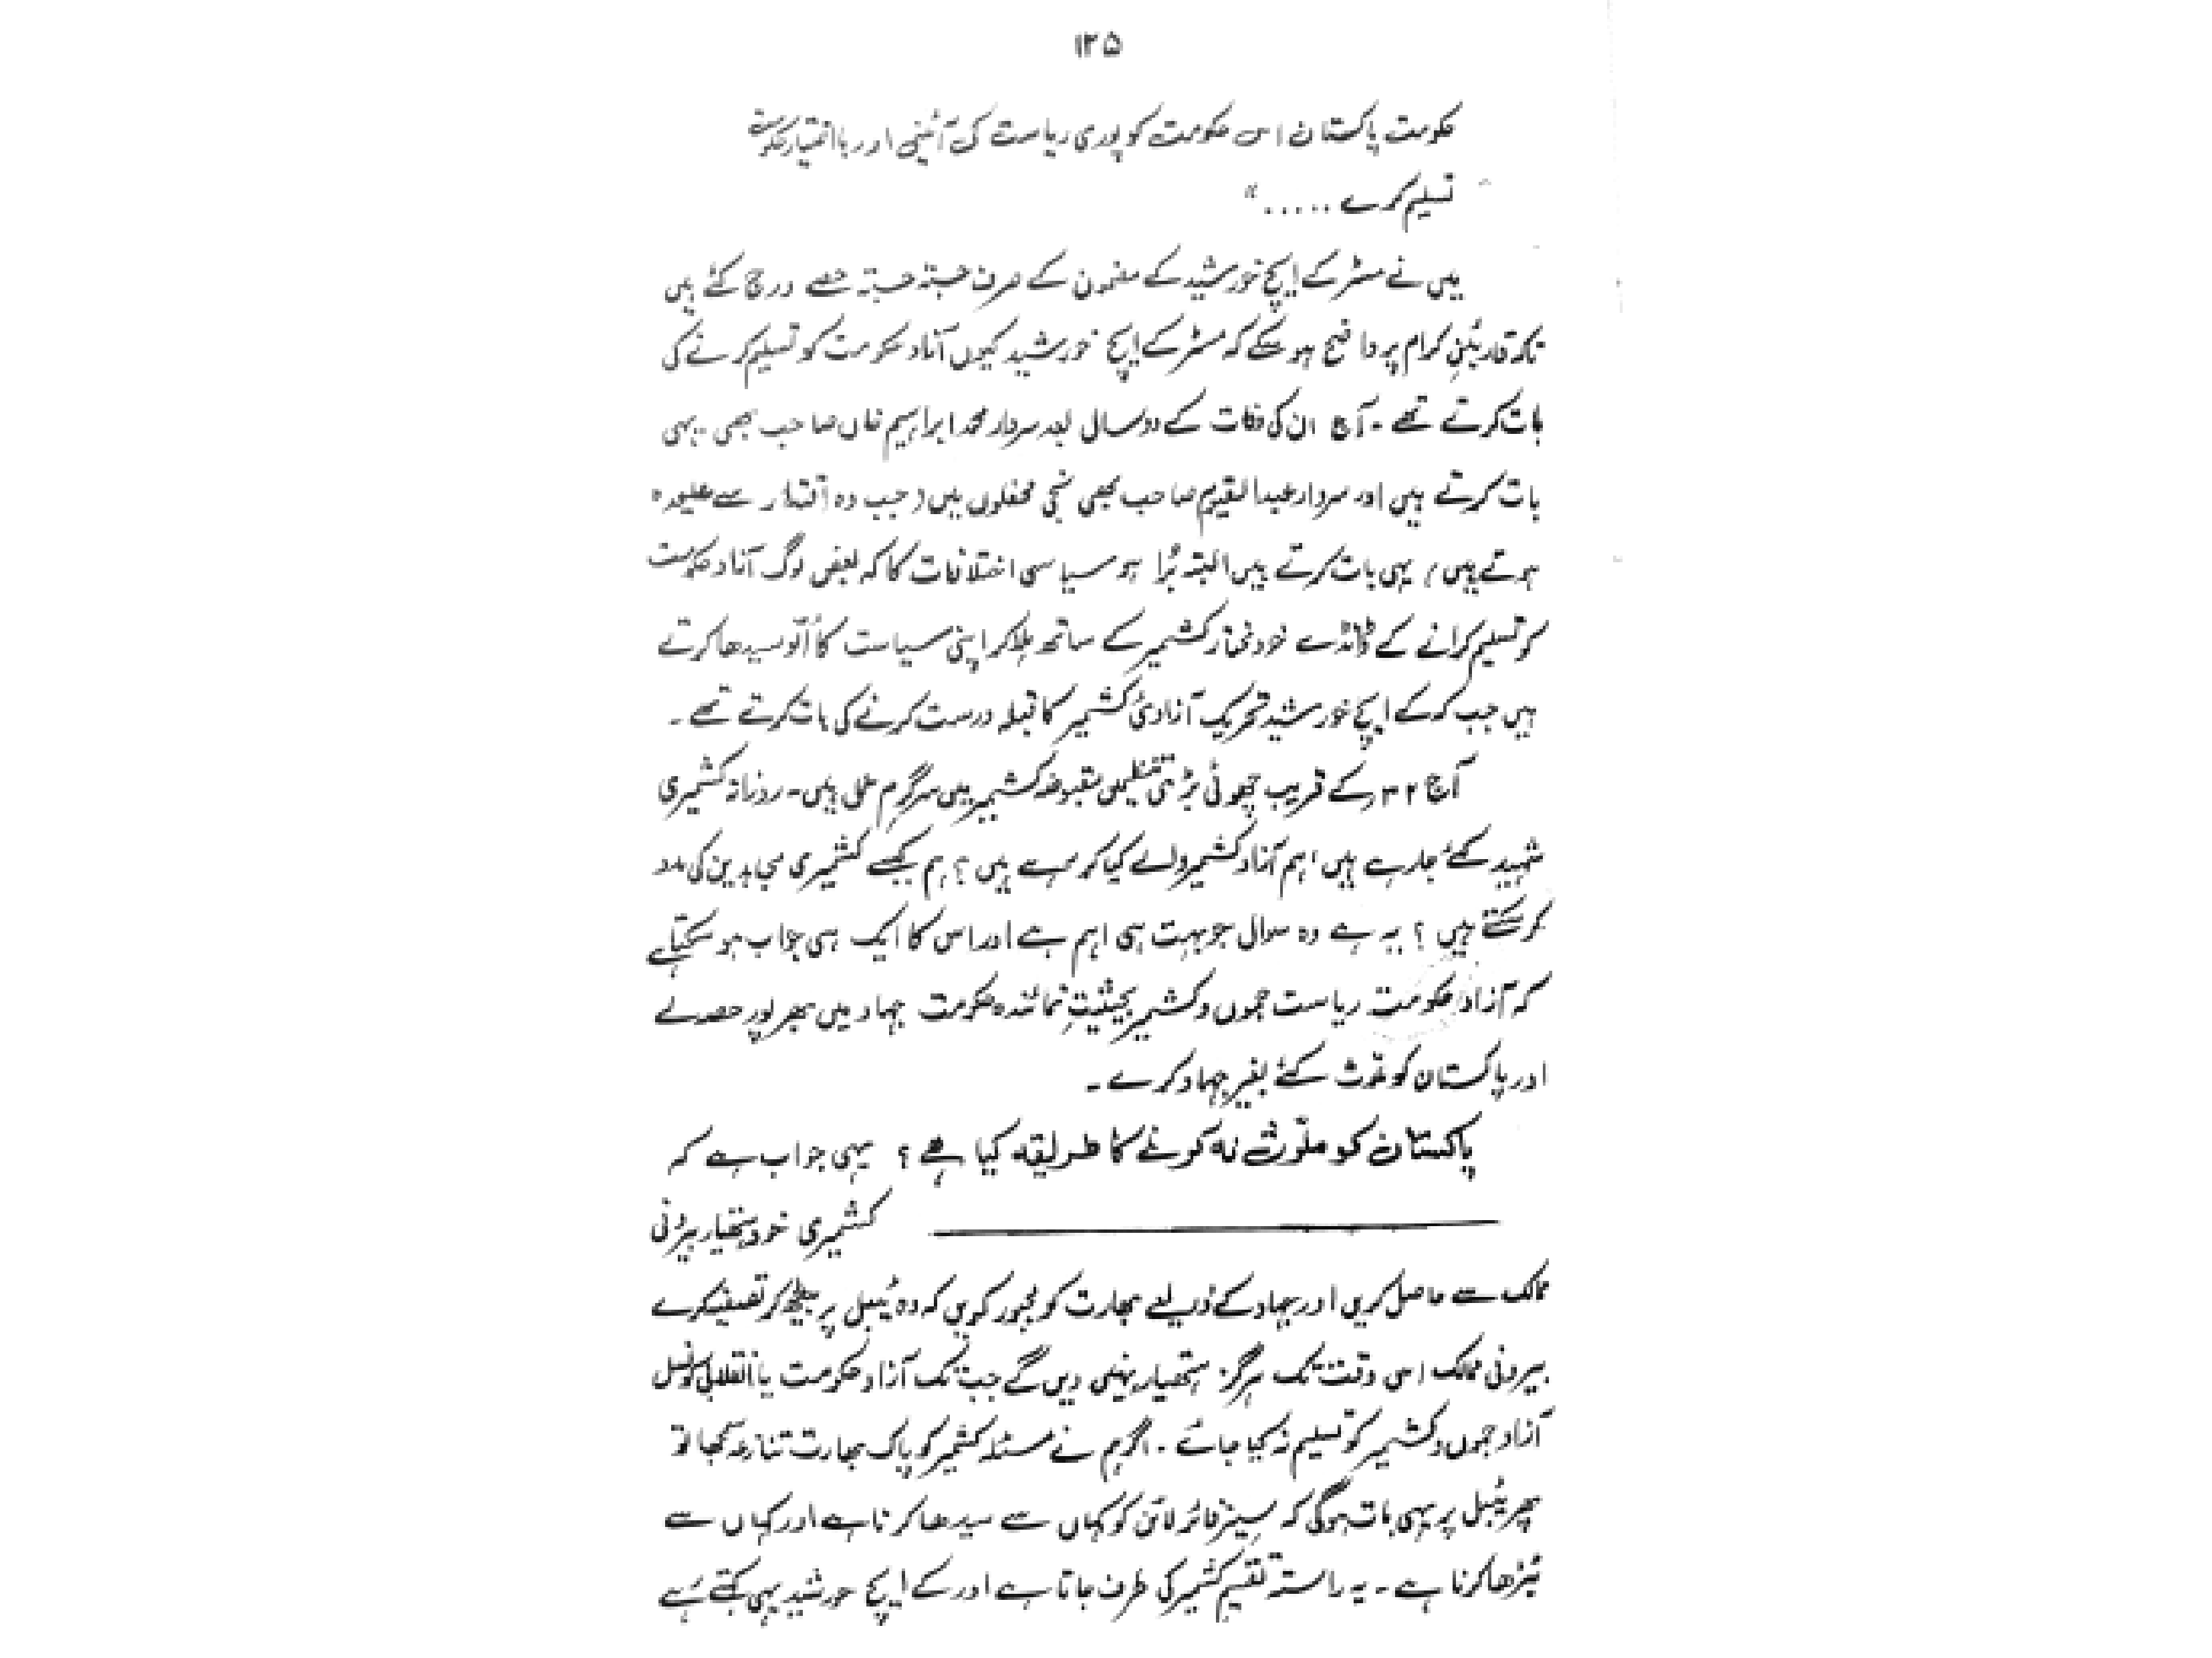 ۱۲۵
حکومت پاکستان اس حکومت کو پوری ریاست کی آئینی اور بااختیار حکومت
تسلیم کرے ....."
میں نے مسٹر کے ایچ خورشید کے مضمون کے صرف جستہ جستہ حصے درج کئے ہیں
تاکہ قارئینِ کرام پر واضح ہو سکے کہ مسٹر کے ایچ خورشید کیوں آزاد حکومت کو تسلیم کرنے کی
بات کرتے تھے ۔ آج ان کی وفات کے دو سال بعد سردار محمد ابراہیم خان صاحب بھی یہی
بات کرتے ہیں اور سردار عبدالقیوم صاحب بھی نجی محفلوں میں (جب وہ اقتدار سے علیحدہ
ہوتے ہیں) یہی بات کرتے ہیں البتہ بُرا ہو سیاسی اختلافات کا کہ بعض لوگ آزاد حکومت
کو تسلیم کرانے کے ڈانڈے خود مختار کشمیر کے ساتھ ملا کر اپنی سیاست کا اُلّو سیدھا کرتے
ہیں جب کہ کے ایچ خورشید تحریک آزادیٔ کشمیر کا قبلہ درست کرنے کی بات کرتے تھے ۔
آج ۳۲ کے قریب چھوٹی بڑی تنظیمیں مقبوضہ کشمیر میں سرگرم عمل ہیں۔ روزانہ کشمیری
شہید کئے جا رہے ہیں، ہم آزاد کشمیر والے کیا کر رہے ہیں ؟ ہم کیسے کشمیری مجاہدین کی مدد
کر سکتے ہیں ؟ یہ ہے وہ سوال جو بہت ہی اہم ہے اور اس کا ایک ہی جواب ہو سکتا ہے
کہ آزاد حکومت ریاست جموں و کشمیر بحیثیتِ نمائندہ حکومت جہاد میں بھرپور حصہ لے
اور پاکستان کو ملوّث کئے بغیر جہاد کرے ۔
پاکستان کو ملوّث نہ کرنے کا طریقہ کیا ہے ؟ یہی جواب ہے کہ
کشمیری خود ہتھیار بیرونی
ممالک سے حاصل کریں اور جہاد کے ذریعے بھارت کو مجبور کریں کہ وہ ٹیبل پر بیٹھ کر تصفیہ کرے
بیرونی ممالک اس وقت تک ہرگز ہتھیار نہیں دیں گے جب تک آزاد حکومت یا انقلابی کونسل
آزاد جموں و کشمیر کو تسلیم نہ کیا جائے ۔ اگر ہم نے مسئلہ کشمیر کو پاک بھارت تنازعہ سمجھا تو
پھر ٹیبل پر یہی بات ہوگی کہ سیز فائر لائن کو کہاں سے سیدھا کرنا ہے اور کہاں سے
ٹیڑھا کرنا ہے ۔ یہ راستہ تقسیم کشمیر کی طرف جاتا ہے اور کے ایچ خورشید یہی کہتے رہے